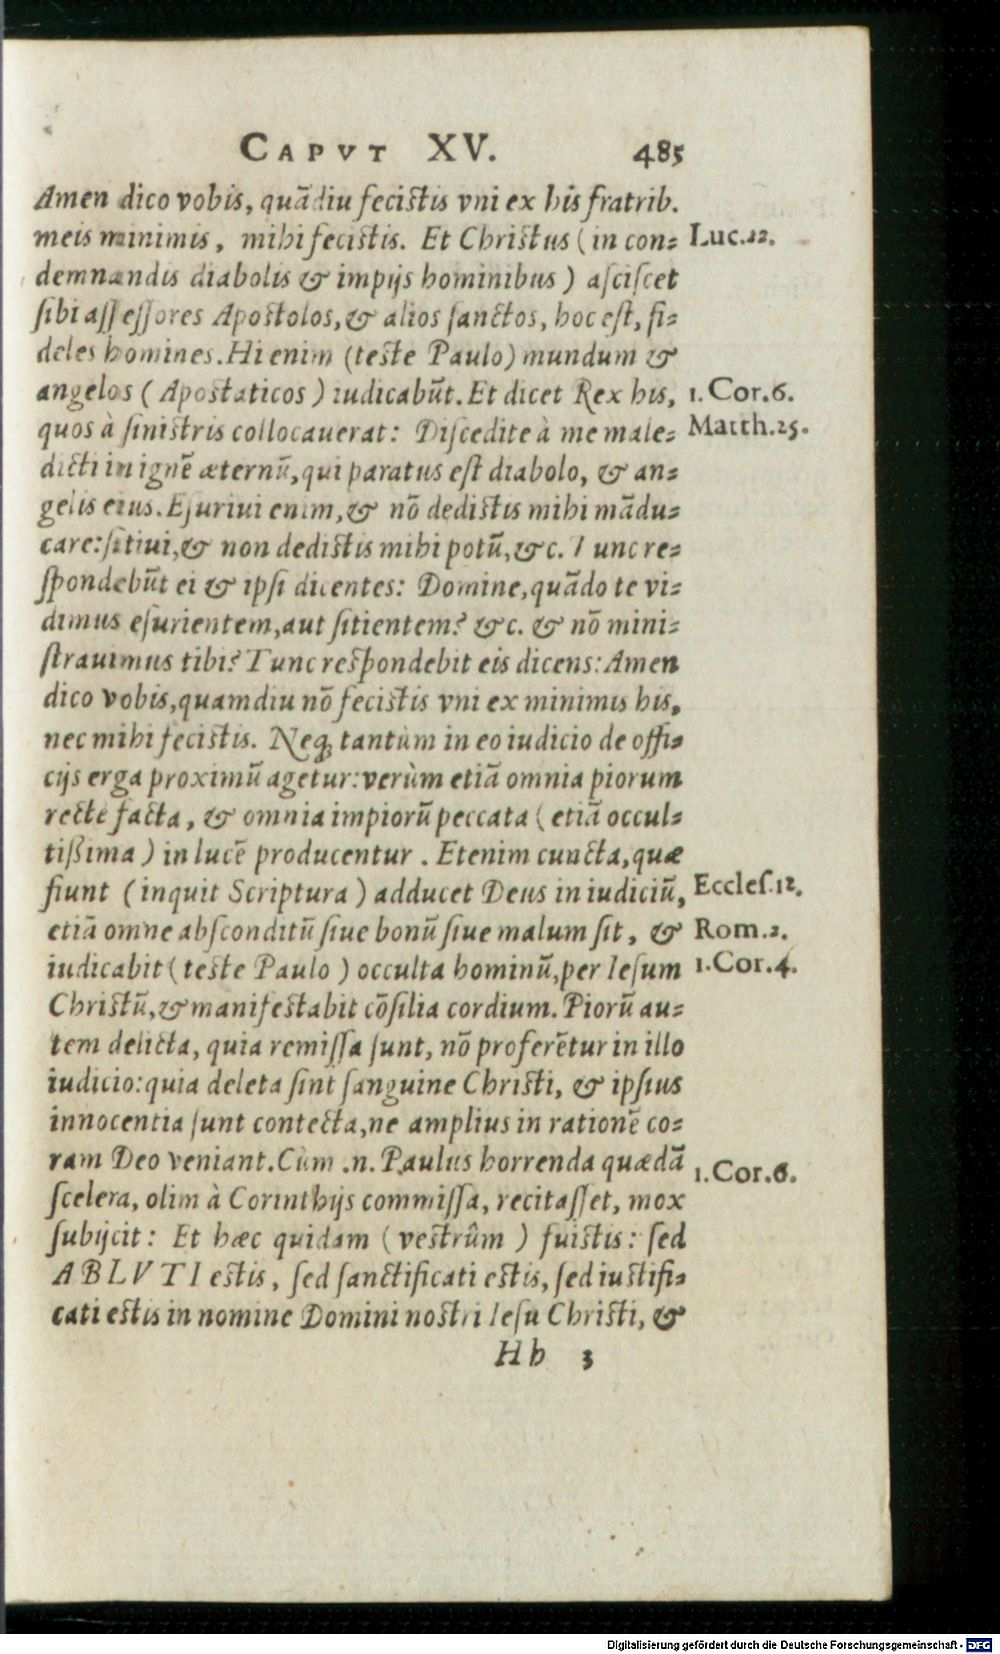 CAPVT XV. 485
Amen dico vobis, quādiu fecistis vni ex his fratrib.
meis minimis, mihi fecistis. Et Christus (in con=
Luc.22.
demnandis diabolis & impijs hominibus) asciscet
sibi assessores Apostolos, & alios sanctos, hoc est, fi=
deles homines. Hi enim (teste Paulo) mundum &
angelos (Apostaticos) iudicabūt. Et dicet Rex his,
1. Cor.6.
quos à sinistris collocauerat: Discedite à me male=
Matth.25.
dicti in ignē æternū, qui paratus est diabolo, & an=
gelis eius. Esuriui enim, & nō dedistis mihi mādu=
care: sitiui, & non dedistis mihi potū, &c. Tunc re=
spondebūt ei & ipsi dicentes: Domine, quādo te vi=
dimus esurientem, aut sitientem? &c. & nō mini=
strauimus tibi? Tunc respondebit eis dicens: Amen
dico vobis, quamdiu nō fecistis vni ex minimis his,
nec mihi fecistis. Neq; tantùm in eo iudicio de offi=
cijs erga proximū agetur: verùm etiā omnia piorum
recte facta, & omnia impiorū peccata (etiā occul=
tißima) in lucē producentur. Etenim cuncta, quæ
fiunt (inquit Scriptura) adducet Deus in iudiciū,
Eccles.12.
etiā omne absconditū siue bonū siue malum sit, &
Rom.2.
iudicabit (teste Paulo) occulta hominū, per Iesum
1.Cor.4.
Christū, & manifestabit cōsilia cordium. Piorū au=
tem delicta, quia remissa sunt, nō proferētur in illo
iudicio: quia deleta sint sanguine Christi, & ipsius
innocentia sunt contecta, ne amplius in rationē co=
ram Deo veniant. Cùm .n. Paulus horrenda quædā
1.Cor.6.
scelera, olim à Corinthijs commissa, recitasset, mox
subijcit: Et hæc quidam (vestrûm) fuistis: sed
ABLVTI estis, sed sanctificati estis, sed iustifi=
cati estis in nomine Domini nostri Iesu Christi, &
Hh 3
Digitalisierung gefördert durch die Deutsche Forschungsgemeinschaft - DFG